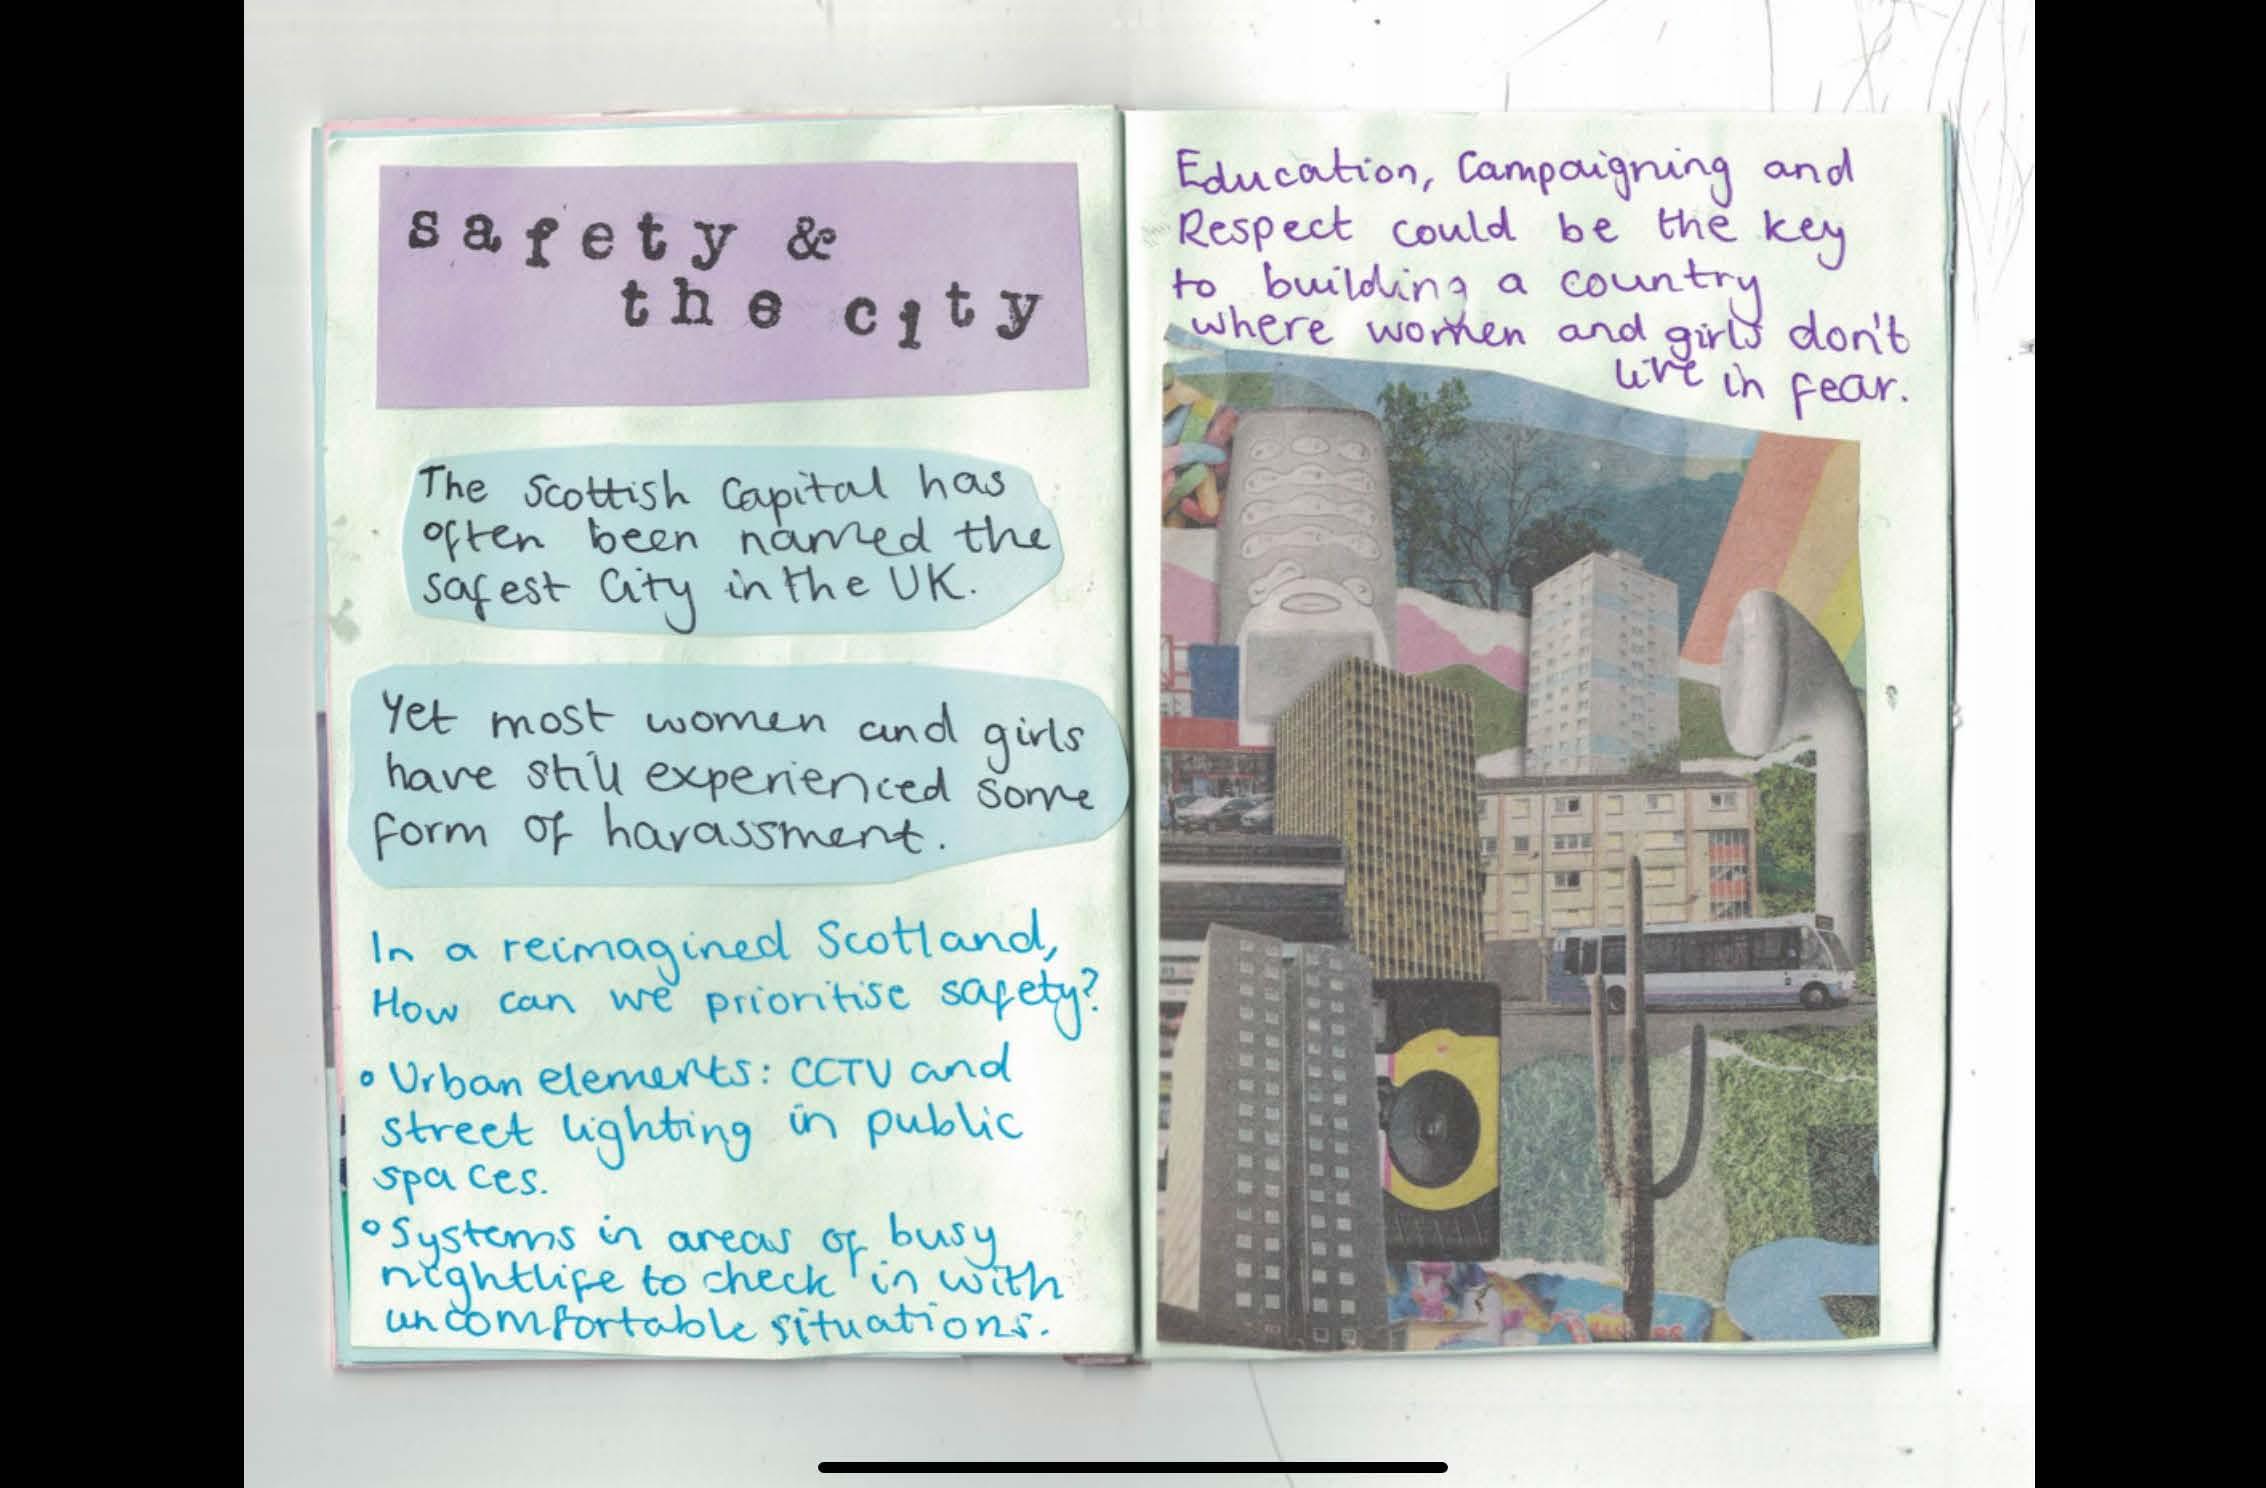 safety &
the city
The Scottish Capital has
often been named the
safest City in the UK.
Yet most women and girls
have still experienced some
form of harassment.
In a reimagined Scotland,
How can we prioritise safety?
• Urban elements: CCTV and
street lighting in public
spaces.
• Systems in areas of busy
nightlife to check in with
uncomfortable situations.
Education, Campaigning and
Respect could be the key
to building a country
where women and girls don't
live in fear.